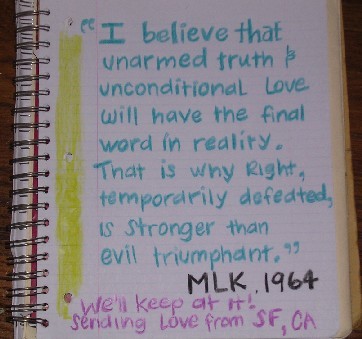 "I believe that
unarmed truth &
unconditional Love
will have the final
word in reality.
That is why Right,
temporarily defeated,
is Stronger than
evil triumphant."
MLK, 1964
We'll keep at it!
Sending Love from SF, CA